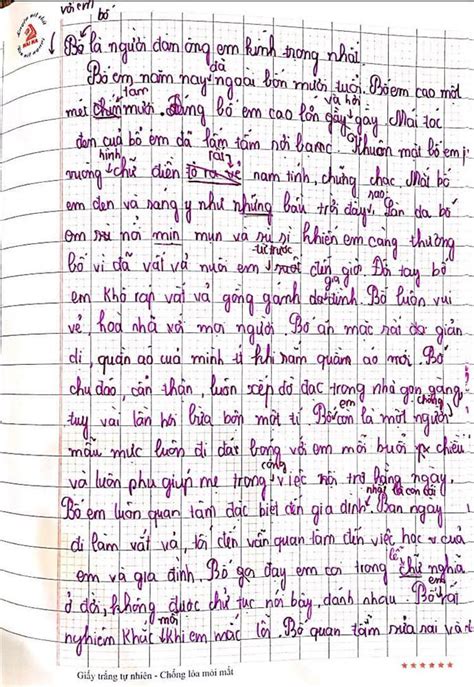 với em bố
Bố là người đàn ông em kính trọng nhất.
đã
Bố em năm nay ngoài bốn mươi tuổi. Bố em cao một
tám và hơi
mét chín mươi. Dáng bố em cao lớn gầy gầy. Mái tóc
đen của bố em đã lấm tấm sợi bạc. Khuôn mặt bố em
hình rất
vuông chữ điền tỏ ra vẻ nam tính, chững chạc. Mắt bố
sao
em đen và sáng y như những bầu trời đầy. Làn da bố
em nổi mụn và sần sì khiến em càng thương
từ trước
bố vì đã vất vả nuôi em suốt đến giờ. Đôi tay bố
gia
em khô ráp vất vả gồng gánh đình. Bố luôn vui
vẻ, hoà nhã với mọi người. Bố ăn mặc rất giản
dị, quần áo của mình ít khi sắm quần áo mới. Bố
chu đáo, cẩn thận, luôn xếp đồ đạc trong nhà gọn gàng,
chồng
tuy vài lần hơi bừa bộn một tí. Bố em còn là một người
mẫu mực luôn đi đá bóng với em mỗi buổi chiều
công
và luôn phụ giúp mẹ trong việc nội trợ hằng ngày.
nhất là con cái
Bố em luôn quan tâm đặc biệt đến gia đình. Ban ngày
đi làm vất vả, tối đến vẫn quan tâm đến việc học của
lễ
em và gia đình. Bố gọi dạy em coi trọng chữ nghĩa
ở đời, không được chử tục nói bậy, đánh nhau. Bố em rất
mỗi
nghiêm khắc khi em mắc lỗi. Bố quan tâm sửa sai và
Giấy trắng tự nhiên - Chống lóa mỏi mắt